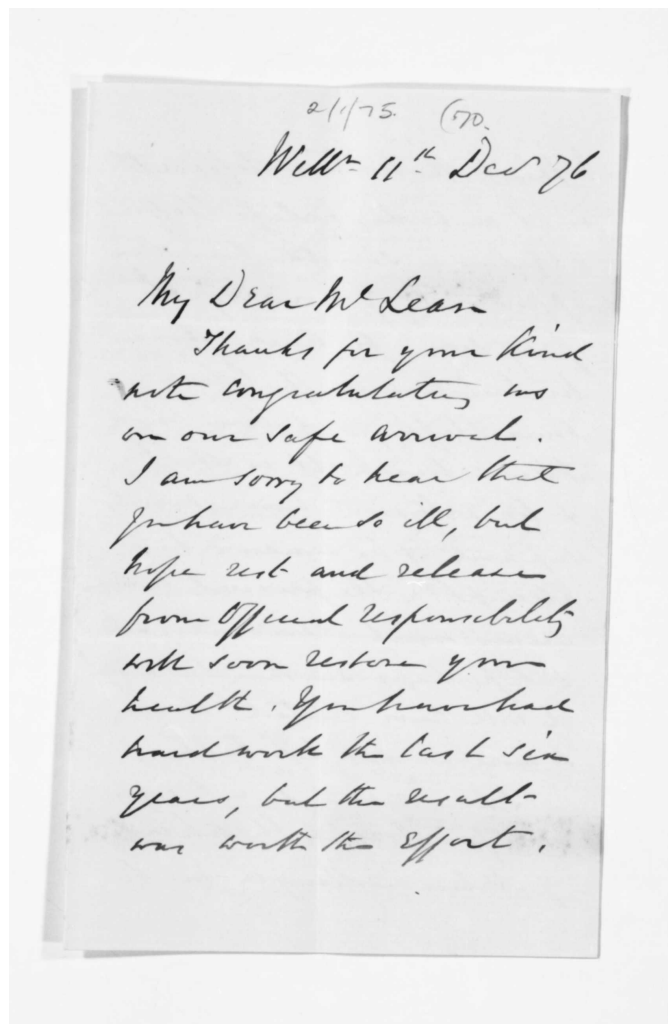 2/1/75. (70.
Welln 11th Decr 76
My Dear McLean
Thanks for your kind
note congratulating us
on our safe arrival.
I am sorry to hear that
you have been so ill, but
hope rest and release
from Official responsibility
will soon restore your
health. You have had
hard work the last six
years, but the result
was worth the effort.